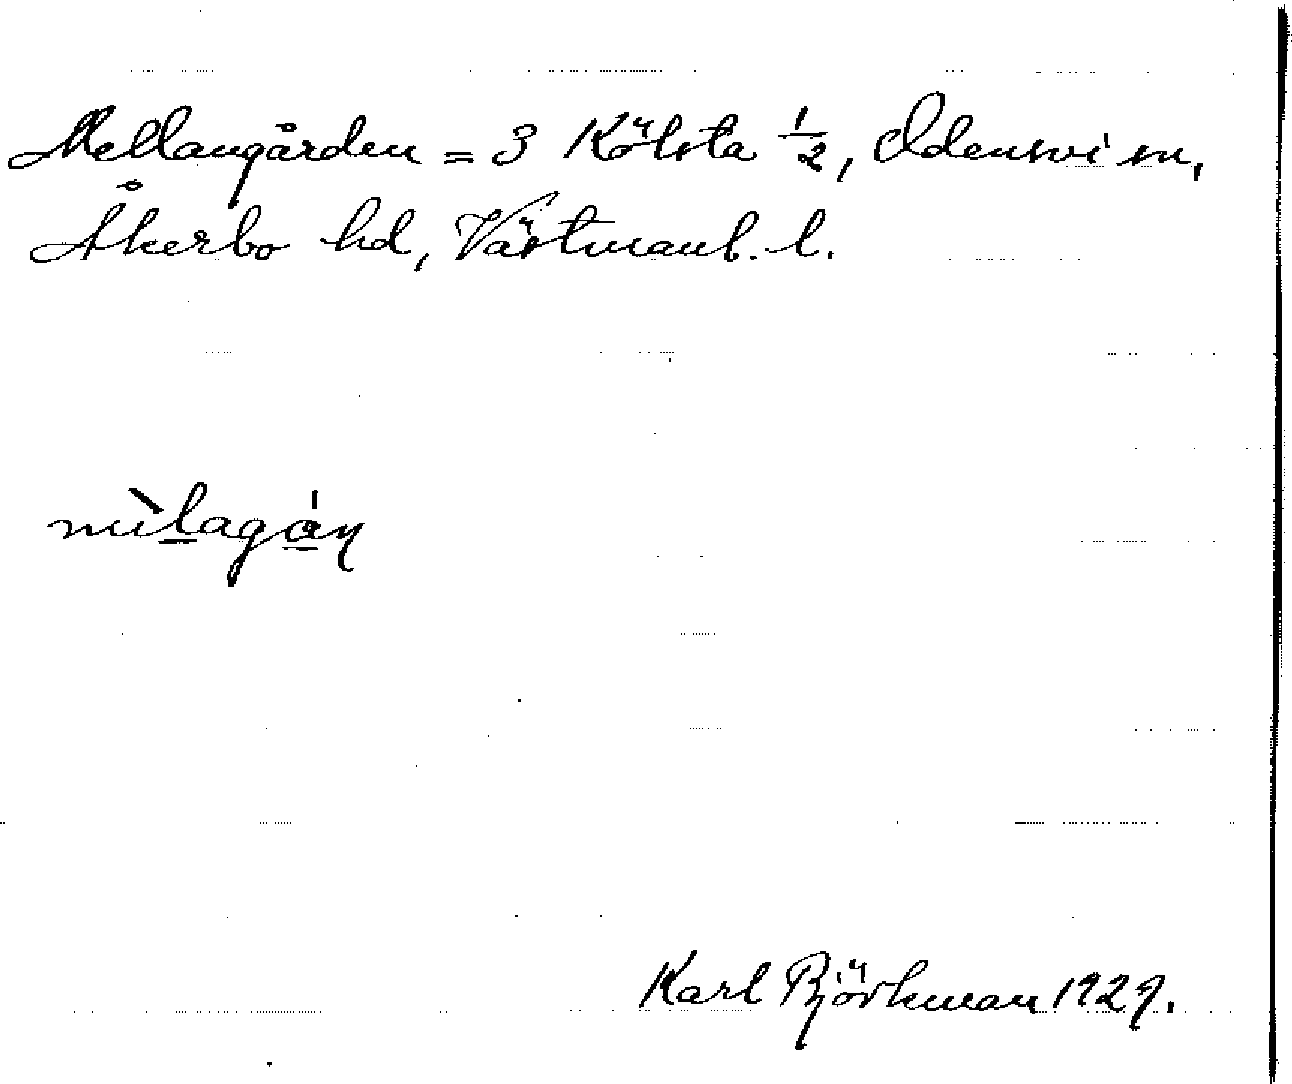 Mellangården = 3 Kölsta 1/2, Odensvi sn,
Åkerbo hd, Västmanl. l.
mìlagán
Karl Björkman 1929.